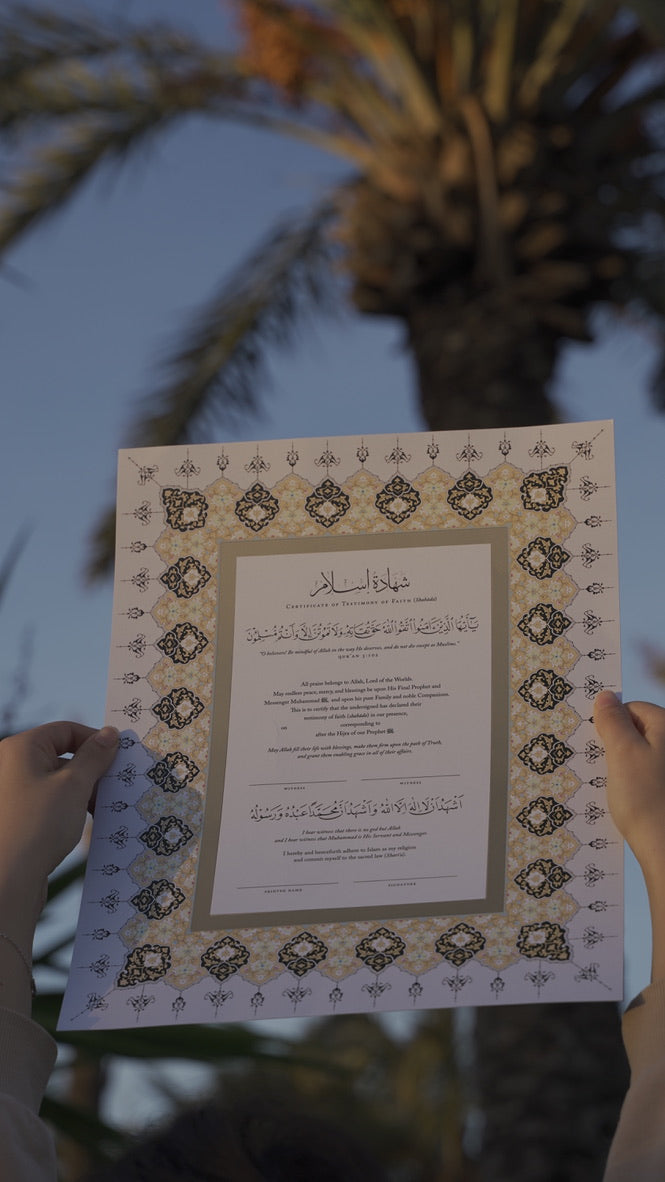 شهادة إسلام
Certificate of Testimony of Faith (Shahada)
يَٰٓأَيُّهَا ٱلَّذِينَ ءَامَنُوا۟ ٱتَّقُوا۟ ٱللَّهَ حَقَّ تُقَاتِهِۦ وَلَا تَمُوتُنَّ إِلَّا وَأَنتُم مُّسْلِمُونَ
"O believers! Be mindful of Allah in the way He deserves, and do not die except as Muslims."
QUR'AN 3:102
All praise belongs to Allah, Lord of the Worlds.
May endless peace, mercy, and blessings be upon His Final Prophet and
Messenger Muhammad ﷺ, and upon his pure Family and noble Companions.
This is to certify that the undersigned has declared their
testimony of faith (shahada) in our presence,
on corresponding to
after the Hijra of our Prophet ﷺ.
May Allah fill their life with blessings, make them firm upon the path of Truth,
and grant them enabling grace in all of their affairs.
WITNESS WITNESS
أَشْهَدُ أَنْ لَا إِلٰهَ إِلَّا اللهُ وَأَشْهَدُ أَنَّ مُحَمَّدًا عَبْدُهُ وَرَسُولُهُ
I bear witness that there is no god but Allah
and I bear witness that Muhammad is His Servant and Messenger.
I hereby and henceforth adhere to Islam as my religion
and commit myself to the sacred law (Shari'a).
PRINTED NAME SIGNATURE